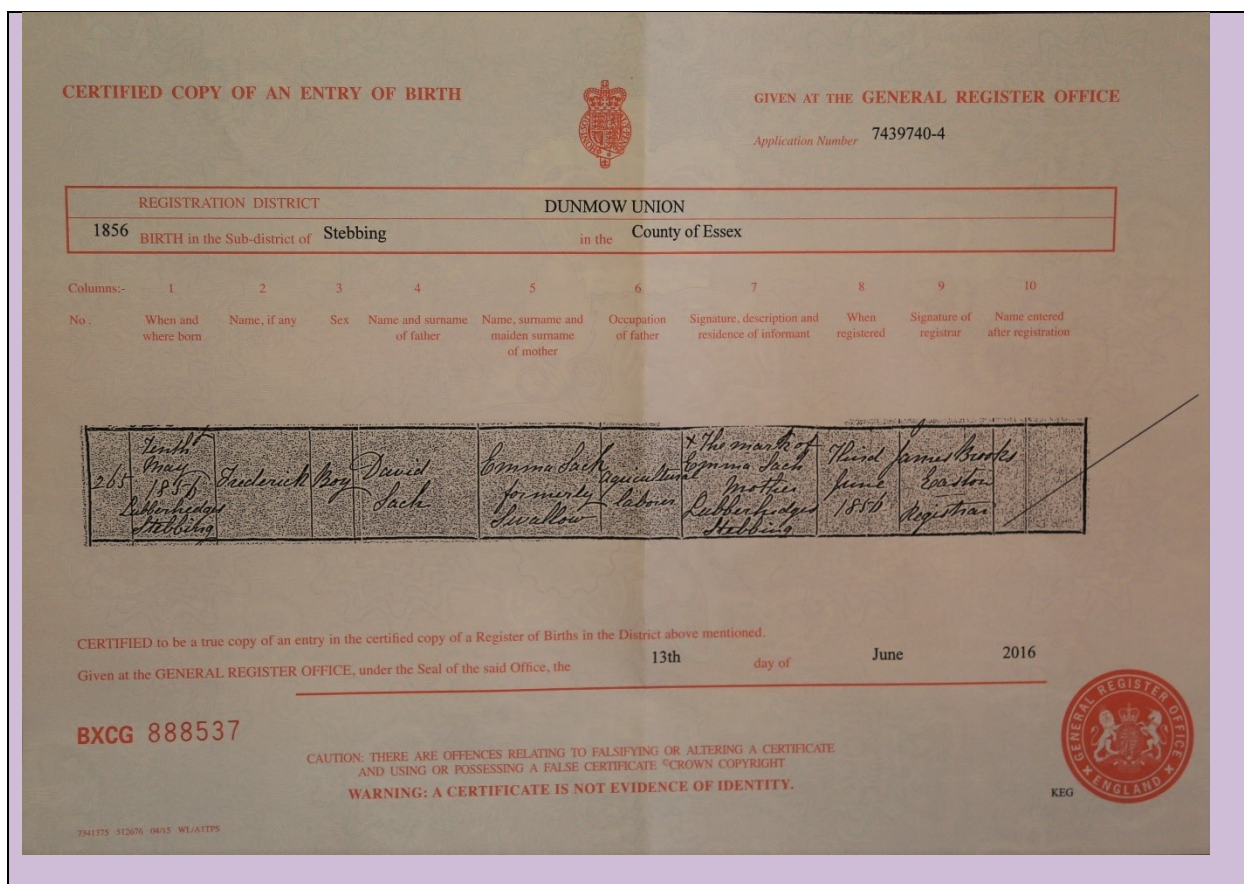 CERTIFIED COPY OF AN ENTRY OF BIRTH
GIVEN AT THE GENERAL REGISTER OFFICE
Application Number 7439740-4
REGISTRATION DISTRICT DUNMOW UNION
1856 BIRTH in the Sub-district of Stebbing in the County of Essex
Columns:- 1 2 3 4 5 6 7 8 9 10
No. When and where born
Name, if any
Sex
Name and surname of father
Name, surname and maiden surname of mother
Occupation of father
Signature, description and residence of informant
When registered
Signature of registrar
Name entered after registration
265
Tenth
May
1856
Lubberhedges
Stebbing
Frederick
Boy
David
Sach
Emma Sach
formerly
Swallow
Agricultural
labourer
X The mark of
Emma Sach
Mother
Lubberhedges
Stebbing
Third
June
1856
James Brooks
Easton
Registrar
CERTIFIED to be a true copy of an entry in the certified copy of a Register of Births in the District above mentioned.
Given at the GENERAL REGISTER OFFICE, under the Seal of the said Office, the 13th day of June 2016
BXCG 888537
CAUTION: THERE ARE OFFENCES RELATING TO FALSIFYING OR ALTERING A CERTIFICATE
AND USING OR POSSESSING A FALSE CERTIFICATE ©CROWN COPYRIGHT
WARNING: A CERTIFICATE IS NOT EVIDENCE OF IDENTITY.
GENERAL REGISTER OFFICE
ENGLAND
KEG
7341375 512676 04/15 WL/ATTPS